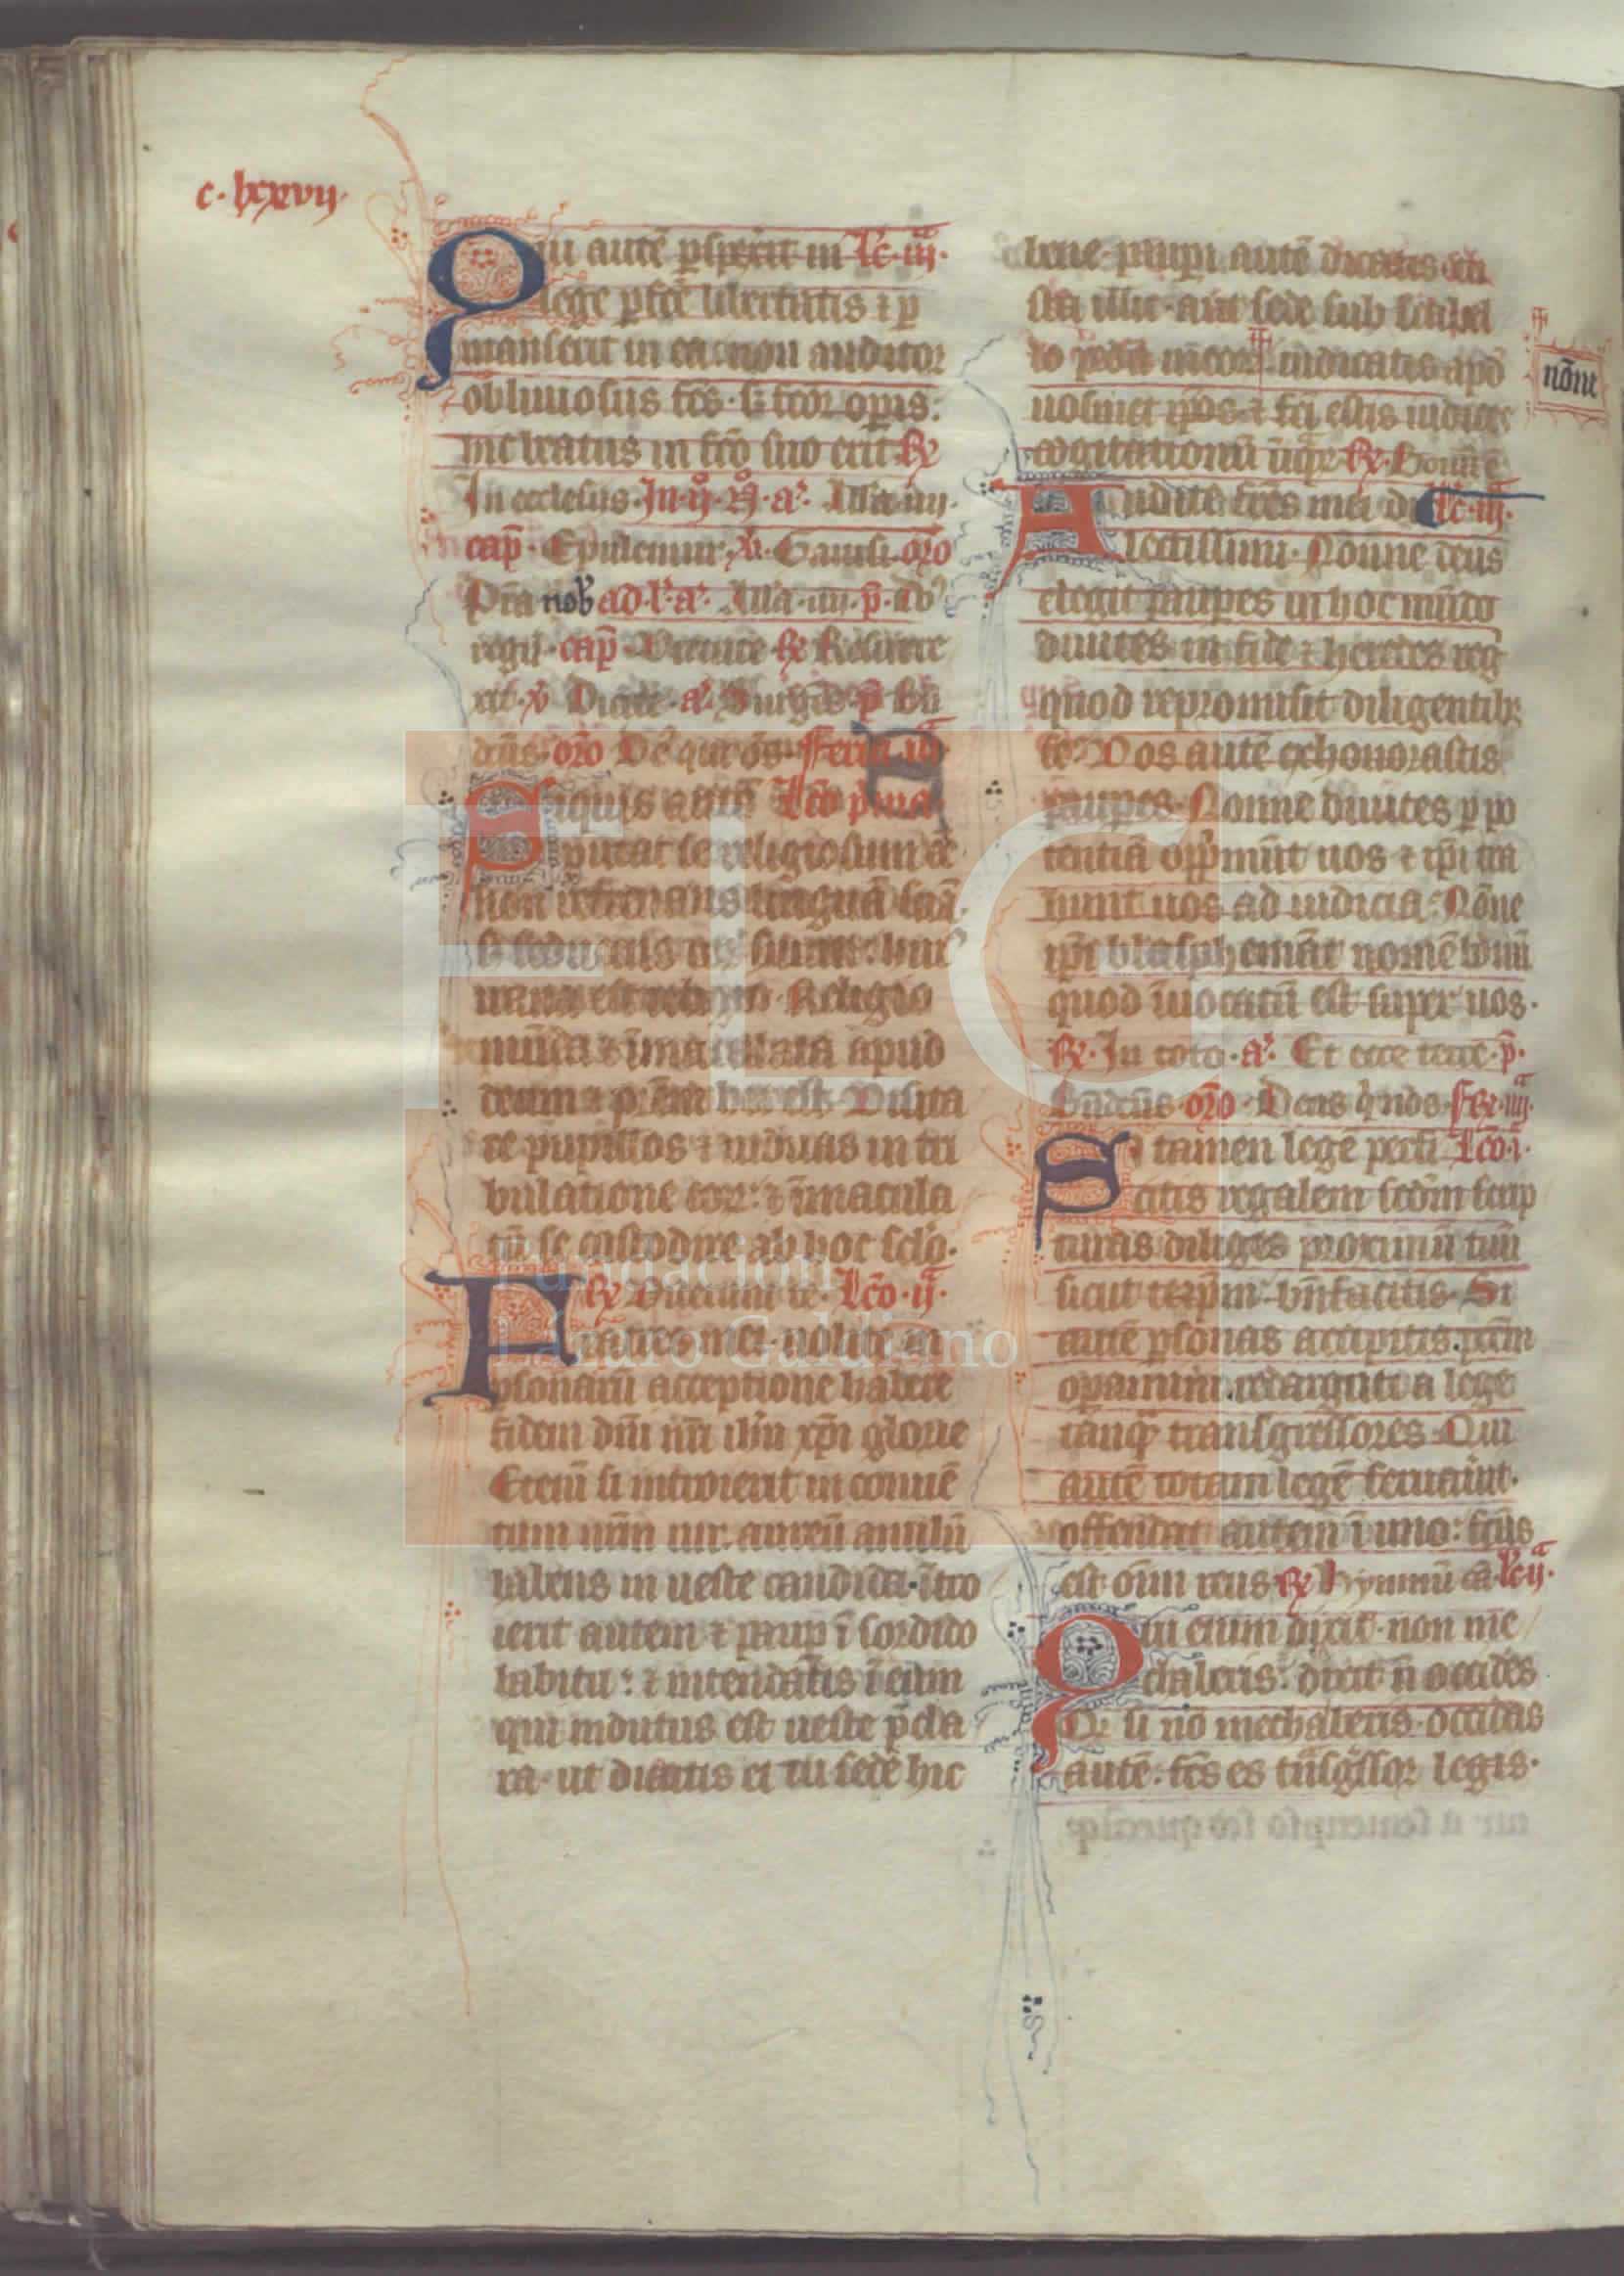 c. lxxvii.
Qui autē ꝑspexit in Lc̄. iij.
lege ꝑfcē libertatis ⁊ ꝑ
manserit in ea: non auditor
obliuiosus fc̄s. s; fcōr oꝑis:
hic beatus in fcō suo erit ℟
In ecclesiis. In. ij. N. a. Alla. iiij.
cap̄. Epulemur, ꝟ. Gauisi. oro
Pn̄a nob ad. l. a. Alla. iiij. p̄. Dn̄s
regn. cap̄. ℟ Resurre
xit. ꝟ Dicite. a. Surgēs. p̄ Bn̄
dc̄us. oro Dē qui ōs. Feria. iij.
Siquis autē Lc̄o p̄ma.
putat se religiosum ēe
non refrenans linguā suā.
s; seducens cor suum: huiꝰ
uana est religio. Religio
mūda ⁊ īmaculata apud
deum ⁊ p̄rem hec est. Visita
re pupillos ⁊ uiduas in tri
bulatione eoꝝ: ⁊ īmacula
tū se custodire ab hoc sclō.
℟ Lc̄o. ij.
Fratres mei. nolite in
ꝑsonarū acceptione habere
fidem dn̄i nr̄i ih̄u xp̄i glorie
Etenī si introierit in conuē
tum ur̄m uir. aureū anulū
habens in ueste candida. ītro
ierit autem ⁊ pauꝑ ī sordido
habitu: ⁊ intendatis ī eum
qui indutus est ueste p̄cla
ra. ut dicatis ei tu sedē hic
bene. pauꝑi autē dicatis tu
sta illic. aut sede sub scabel
lo pedū meoꝝ. iudicatis apd̄
nōne
uosmet ip̄os. ⁊ fc̄i estis iudices
cogitationū iniqꝝ ℟.
Audite frēs mei di Lc̄. iij.
lectissimi. Nonne deus
elegit pauꝑes in hoc mūdo
diuites in fide ⁊ heredes reg
quod repromisit diligentibꝫ
se: Vos autē exhonorastis
pauꝑes. Nonne diuites ꝑ po
tentiā opp̄munt uos ⁊ ip̄i tra
hunt uos ad iudicia: Nōne
ip̄i blasphemāt nomē bonū
quod īuocatū est super uos.
℟. In toto. a. Et ecce terre. p̄.
Bn̄dc̄us oro. Deus q̄ nos. Fr̄. iiij.
Si tamen legē perfi Lc̄o. i.
citis regalem scdm scrip
turas diliges proximū tuū
sicut teip̄m. bn̄ facitis. Si
autē ꝑsonas accipitis. pctm̄
oꝑamini. redarguti a lege
tanqꝫ transgressores. Qui
autē totam legē seruauit.
offendat autem ī uno: fc̄us
est oīm reus ℟ Hymnū cā Lc̄. ij.
Qui enim dixit. non me
chaberis. dixit ⁊ n̄ occides
Qꝫ si nō mechaberis. occidas
autē. fc̄s es tn̄sḡssor legis.
nōne
Fundación
Lázaro Galdiano
FLG